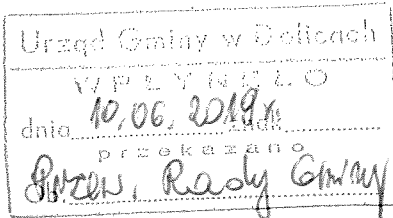 Urząd Gminy w Dolicach
WPŁYNĘŁO
dnia 10.06.2019 r. znak
przekazano
Przew. Rady Gminy